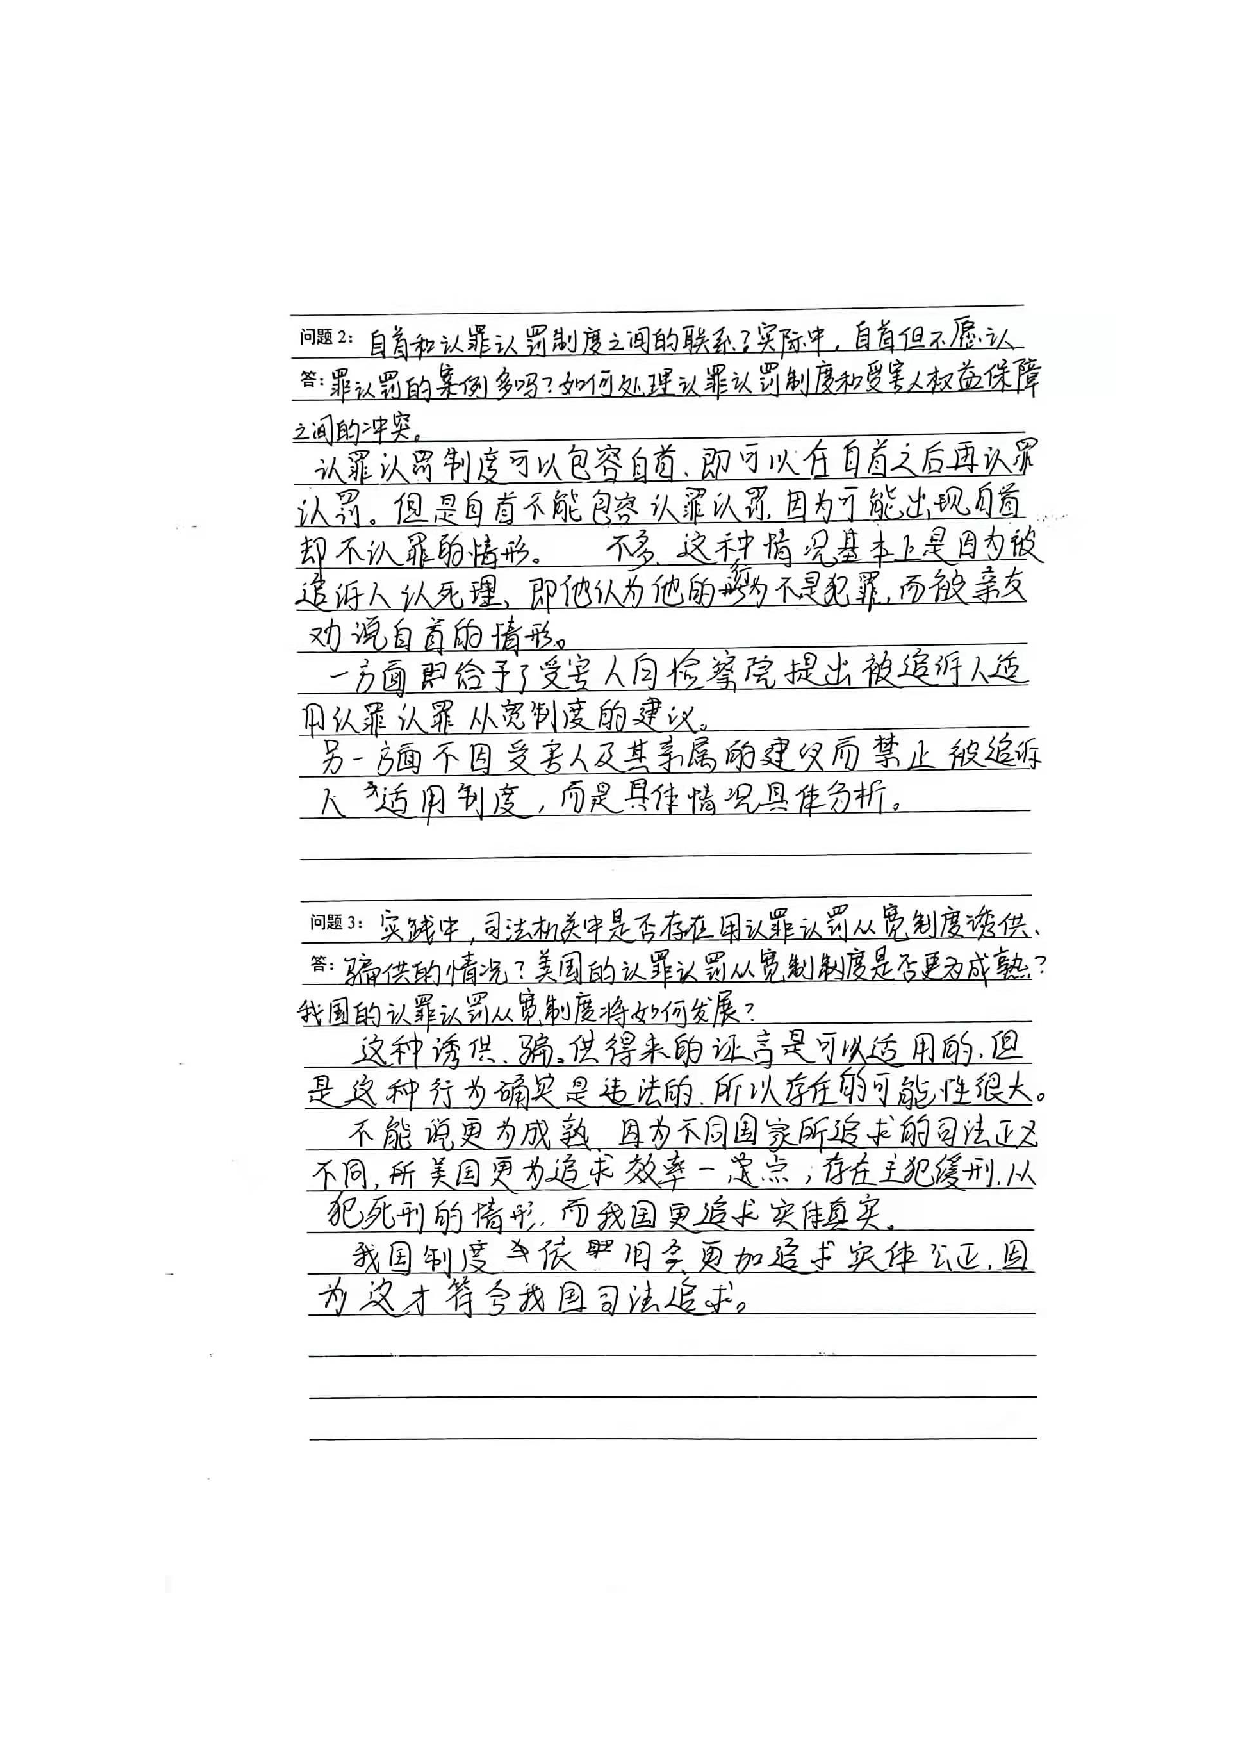 问题2：自首和认罪认罚制度之间的联系？实际中，自首但不愿认
答：罪认罚的案例多吗？如何处理认罪认罚制度和受害人权益保障
之间的冲突。
认罪认罚制度可以包容自首、即可以在自首之后再认罪
认罚。但是自首不能包容认罪认罚，因为可能出现自首
却不认罪的情形。 不多，这种情况基本上是因为被
追诉人认死理、即他认为他的行为不是犯罪，而被亲友
劝说自首的情形。
一方面 给予了受害人向检察院提出被追诉人适
用认罪认罪从宽制度的建议。
另一方面不因受害人及其亲属的建议而禁止被追诉
人适用制度，而是具体情况具体分析。
问题3：实践中，司法机关中是否存在用认罪认罚从宽制度诱供、
答：骗供的情况？美国的认罪认罚从宽制制度是否更为成熟？
我国的认罪认罚从宽制度将如何发展？
这种诱供、骗。供得来的证言是可以适用的，但
是这种行为确实是违法的，所以存在的可能性很大。
不能说更为成熟，因为不同国家所追求的司法正义
不同，所美国更为追求效率一定点，存在主犯缓刑，从
犯死刑的情形，而我国更追求实体真实。
我国制度 依 旧会更加追求实体公正，因
为这才符合我国司法追求。